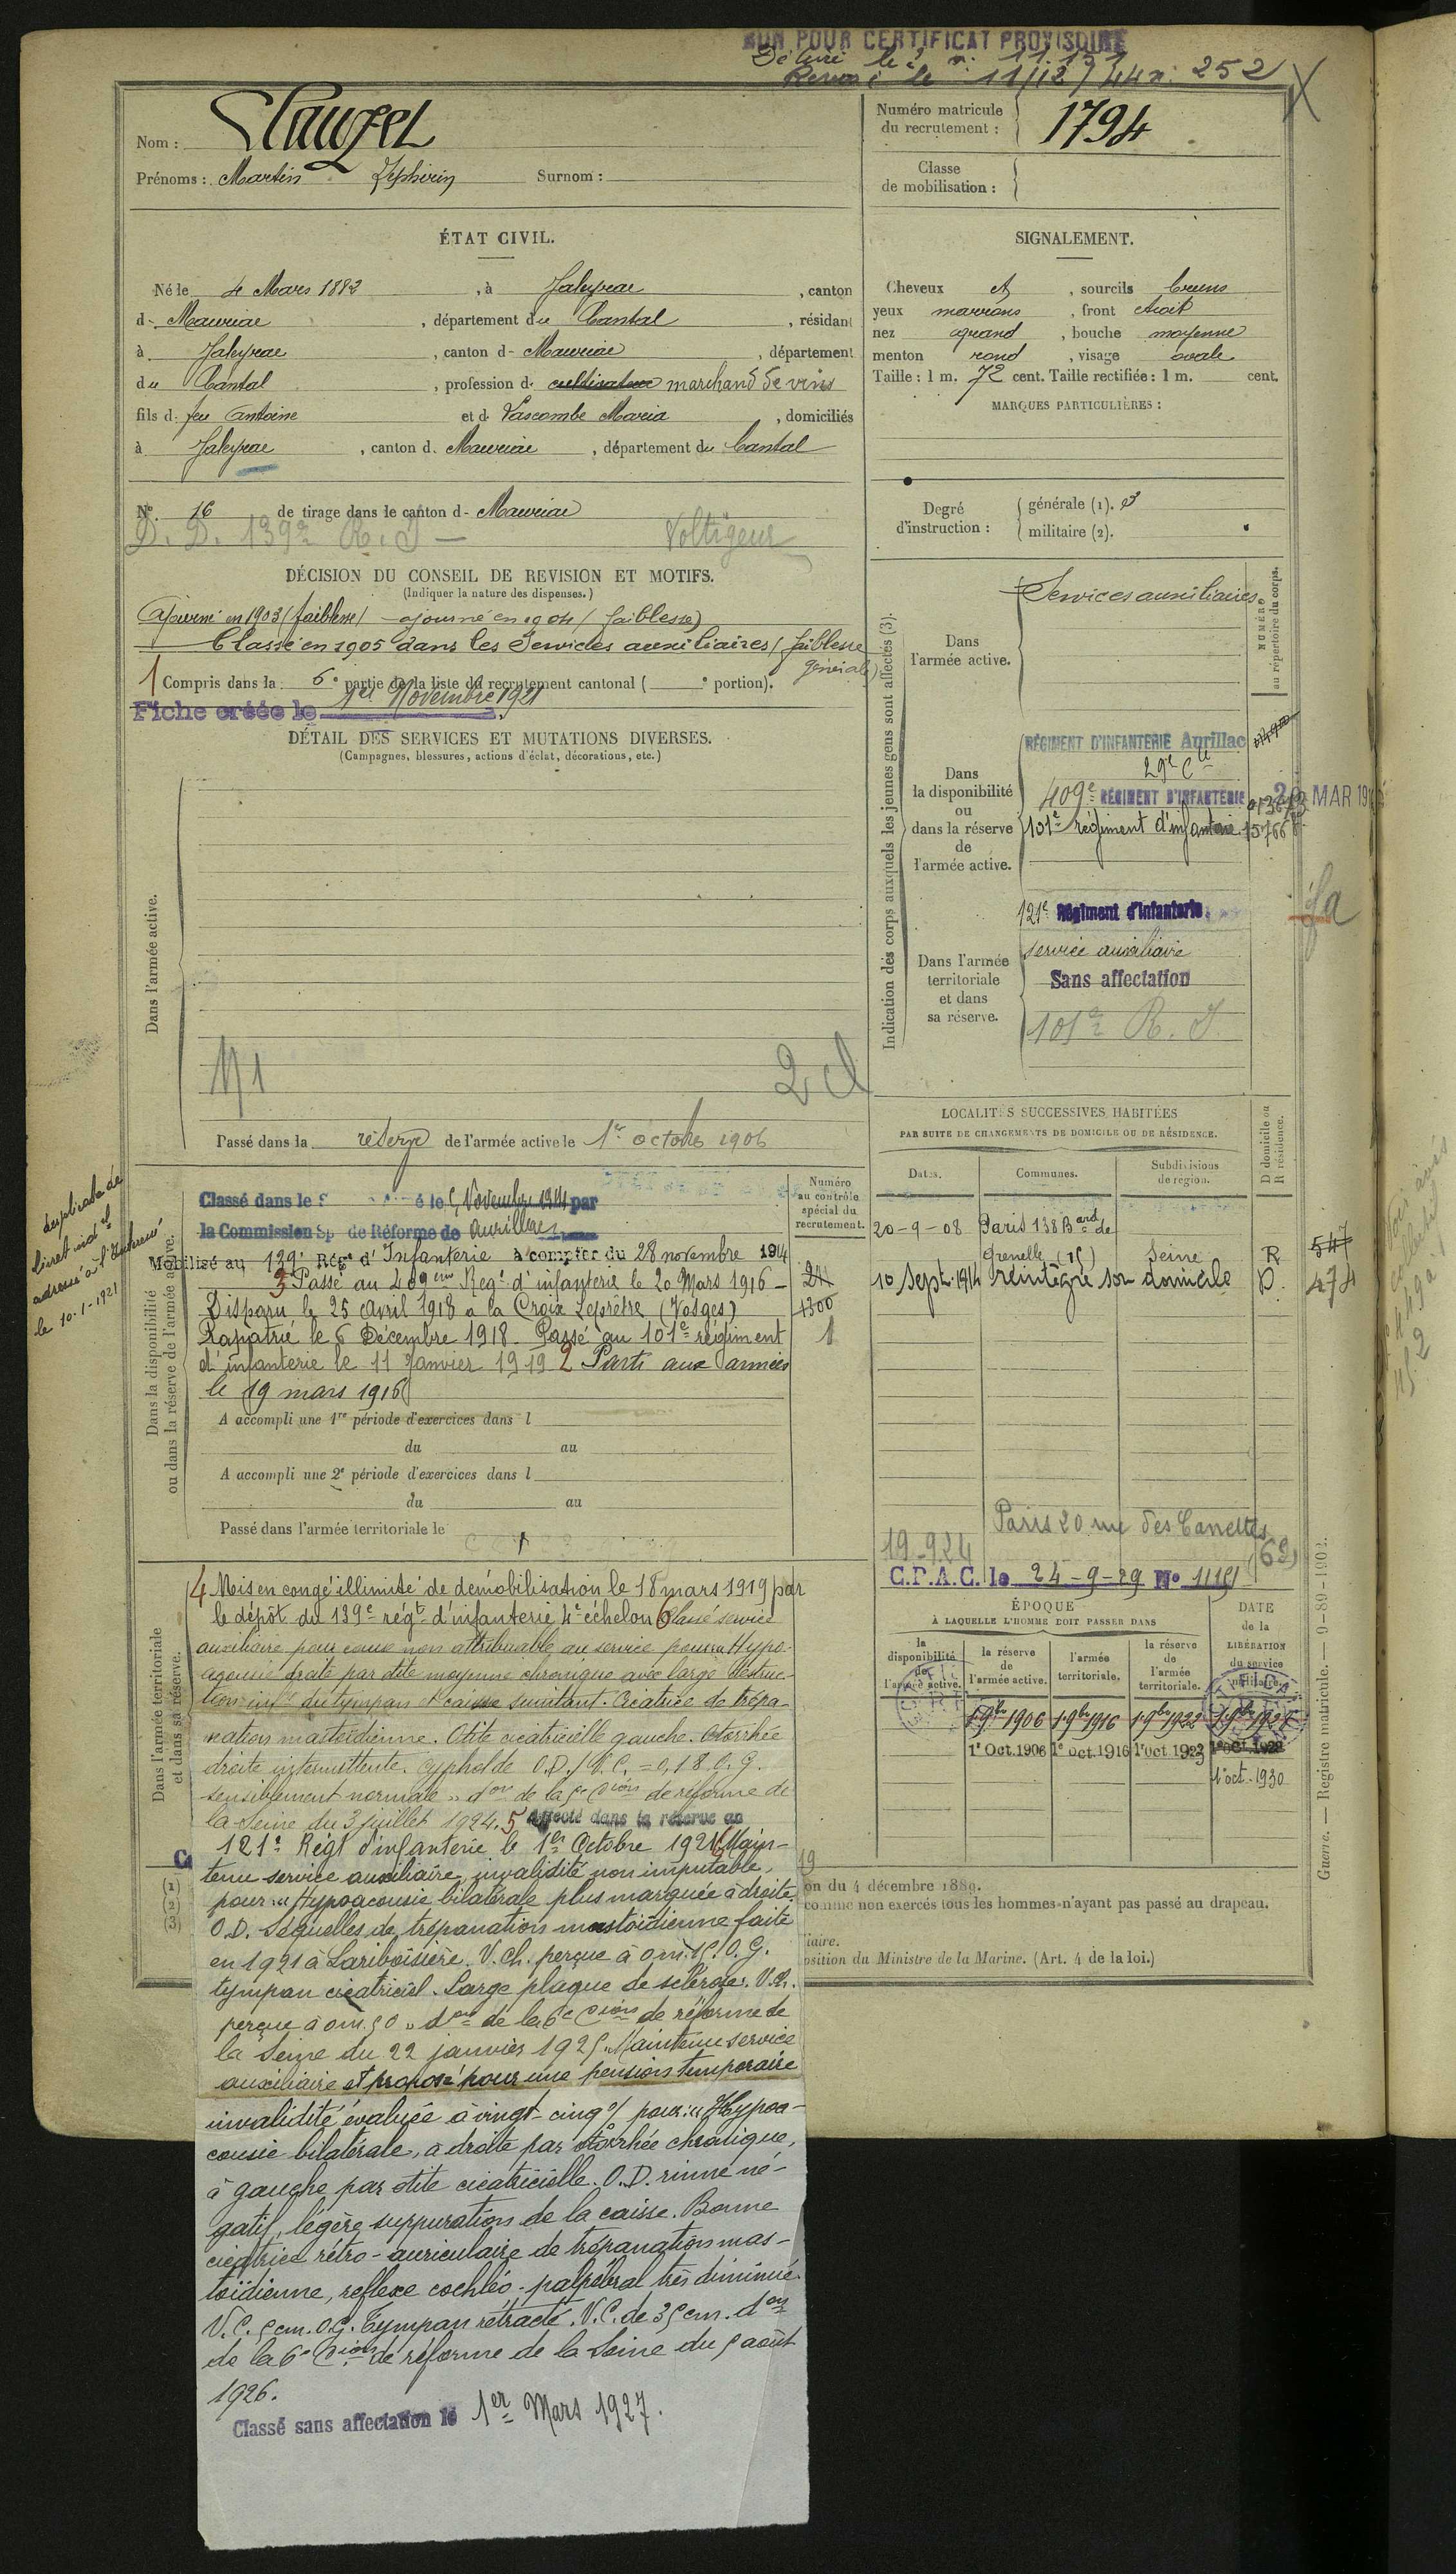 BON POUR CERTIFICAT PROVISOIRE
Délivré le
11/12/44 n° 252
Nom : Clauzel
Prénoms : Martin Zéphirin Surnom :
Numéro matricule du recrutement : 1794
Classe de mobilisation :
ÉTAT CIVIL.
Né le 4 Mars 1883, à Jaleyrac, canton
d- Mauriac, département du Cantal, résidant
à Jaleyrac, canton d- Mauriac, département
du Cantal, profession d- cultivateur marchand de vins
fils d- feu Antoine et d- Lascombe Maria, domiciliés
à Jaleyrac, canton d- Mauriac, département du Cantal
N° 16 de tirage dans le canton d- Mauriac
D. D. 139e R. I - Voltigeur
SIGNALEMENT.
Cheveux et, sourcils bruns
yeux marrons, front étroit
nez grand, bouche moyenne
menton rond, visage ovale
Taille : 1 m. 72 cent. Taille rectifiée : 1 m. cent.
MARQUES PARTICULIÈRES :
Degré d'instruction : générale (1). 3
militaire (2).
DÉCISION DU CONSEIL DE REVISION ET MOTIFS.
(Indiquer la nature des dispenses.)
Ajourné en 1903 (faiblesse) - ajourné en 1904 (faiblesse)
Classé en 1905 dans les Services auxiliaires (faiblesse générale)
1 Compris dans la 6e partie de la liste du recrutement cantonal ( e portion).
Fiche créée le 1er Novembre 1921
DÉTAIL DES SERVICES ET MUTATIONS DIVERSES.
(Campagnes, blessures, actions d'éclat, décorations, etc.)
Dans l'armée active.
Passé dans la réserve de l'armée active le 1er octobre 1906
Indication des corps auxquels les jeunes gens sont affectés (3).
NUMÉRO au répertoire du corps.
Dans l'armée active.
Services auxiliaires
Dans la disponibilité ou dans la réserve de l'armée active.
RÉGIMENT D'INFANTERIE Aurillac
29e Cie
409e RÉGIMENT D'INFANTERIE
MAR 19
101e régiment d'infanterie 15766
Dans l'armée territoriale et dans sa réserve.
121e Régiment d'Infanterie
service auxiliaire
Sans affectation
101e R. I
LOCALITÉS SUCCESSIVES HABITÉES
PAR SUITE DE CHANGEMENTS DE DOMICILE OU DE RÉSIDENCE.
Dates. Communes. Subdivisions de région. D domicile ou R résidence.
20-9-08 Paris 138 Bard de
Grenelle (15) Seine R 547
10 Sept. 1914 réintègre son domicile D. 474
Paris 20 rue des Canettes (6e)
19-9-24
C.P.A.C. le 24-9-29 N° 11151
Duplicata de
livret indel
adressé à l'Intéressé
le 10-1-1921
Dans la disponibilité ou dans la réserve de l'armée active.
Numéro au contrôle spécial du recrutement.
Classé dans le S le 5 Novembre 1914 par
la Commission Sp de Réforme de Aurillac
Mobilisé au 139e Régt d'Infanterie à compter du 28 novembre 1914
3 Passé au 409eme Regt d'infanterie le 20 Mars 1916 -
Disparu le 25 avril 1918 a la Croix Leprêtre (Vosges)
1300
Rapatrié le 6 Décembre 1918. Passé au 101e régiment
d'infanterie le 11 Janvier 1919 2 Parti aux armées
le 19 mars 1916
A accompli une 1re période d'exercices dans l
du au
A accompli une 2e période d'exercices dans l
du au
Passé dans l'armée territoriale le
Dans l'armée territoriale et dans sa réserve.
4 Mis en congé illimité de démobilisation le 18 mars 1919 par
le dépôt du 139e régt d'infanterie 4e échelon 6 Classé service
auxiliaire pour cause non attribuable au service pour "Hypo-
acousie droite par otite moyenne chronique avec large destruc-
tion infre du tympan et caisse suintant. Cicatrice de trépa-
nation mastoïdienne. Otite cicatricielle gauche. Otorrhée
droite intermittente.
sensiblement normale" don de la 5e Cion de réforme de
la Seine du 3 juillet 1924. 5 Affecté dans la réserve au
121e Régt d'infanterie le 1er Octobre 1921 Main-
tenu service auxiliaire, invalidité non imputable,
pour : "Hypoacousie bilatérale plus marquée à droite.
O.D. Séquelles de trépanation mastoïdienne faite
en 1921 à Lariboisière. V. Ch. perçue à 0 m. 15. O. G.
tympan cicatriciel. Large plaque de sclérose. V. Ch.
perçue à 0 m. 50" don de la 6e Cion de réforme de
la Seine du 22 janvier 1925. Maintenu service
auxiliaire et proposé pour une pension temporaire
invalidité évaluée à vingt-cinq % pour : "Hypoa-
cousie bilatérale, à droite par otorrhée chronique,
à gauche par otite cicatricielle. O.D. rinne né-
gatif, légère suppuration de la caisse. Bonne
cicatrice rétro-auriculaire de trépanation mas-
toïdienne, reflexe cochléo-palpébral très diminué.
V. C. 5 cm. O.G. Tympan rétracté. V.C. de 35 cm. don
de la 6e Cion de réforme de la Seine du 5 août
1926.
Classé sans affectation le 1er Mars 1927.
ÉPOQUE À LAQUELLE L'HOMME DOIT PASSER DANS
la disponibilité de l'armée active. la réserve de l'armée active. l'armée territoriale. la réserve de l'armée territoriale. DATE de la LIBÉRATION du service militaire.
1 9bre 1906 1 9bre 1916 1 9bre 1922 1 9bre 1928
1er Oct. 1906 1er Oct. 1916 1er Oct. 1923 1er Oct. 1928
1er oct. 1930
on du 4 décembre 1889.
comme non exercés tous les hommes n'ayant pas passé au drapeau.
iaire.
osition du Ministre de la Marine. (Art. 4 de la loi.)
Guerre. — Registre matricule. — 9-89-1902.